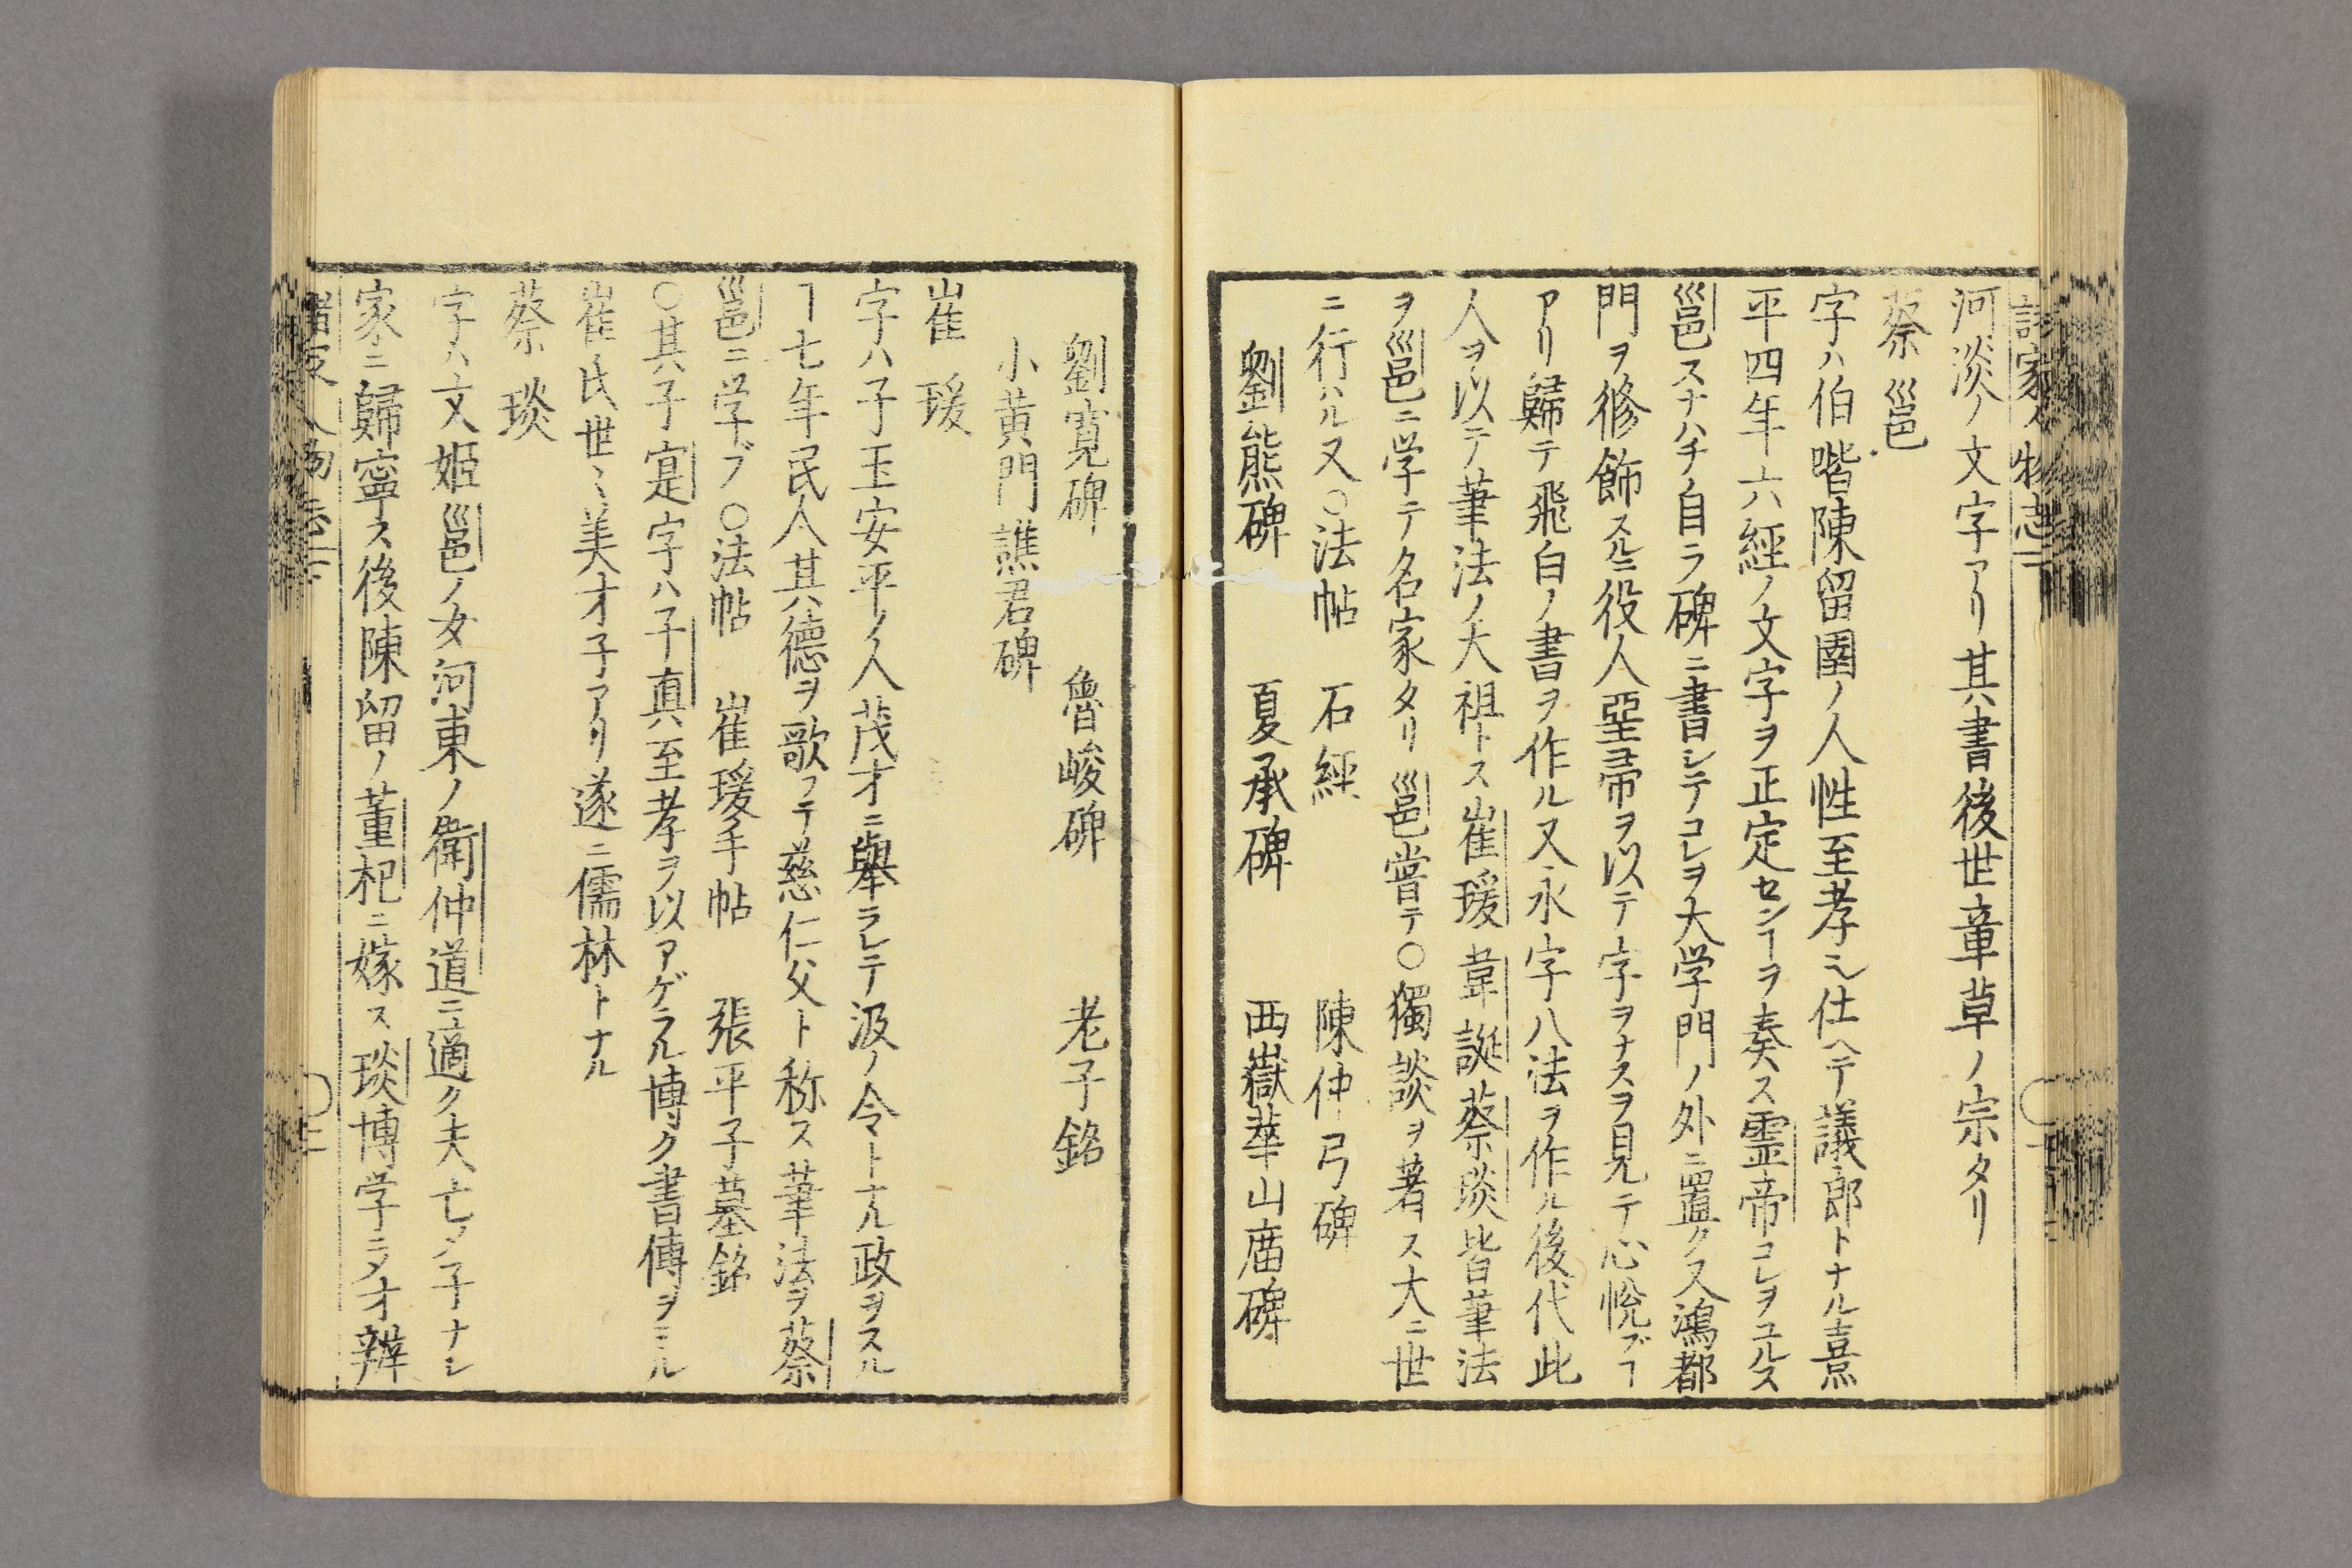 河淡ノ文字アリ其書後世章草ノ宗タリ
蔡邕
字ハ伯喈陳留圉ノ人性至孝ニシ仕ヘテ議郎トナル熹
平四年六經ノ文字ヲ正定センヿヲ奏ス霊帝コレヲユルス
邕スナハチ自ラ碑ニ書シテコレヲ大学門ノ外ニ置ク又鴻都
門ヲ修飾スルニ役人堊帚ヲ以テ字ヲナスヲ見テ心悦ブヿ
アリ歸テ飛白ノ書ヲ作ル又永字八法ヲ作ル後代此
人ヲ以テ筆法ノ大祖トス崔瑗韋誕蔡琰皆筆法
ヲ邕ニ学テ名家タリ邕嘗テ○獨談ヲ著ス大ニ世
ニ行ハル又○法帖 石經 陳仲弓碑
劉熊碑 夏承碑 西嶽華山庿碑
劉寛碑 魯峻碑 老子銘
小黄門譙君碑
崔瑗
字ハ子玉安平ノ人茂才ニ舉ラレテ汲ノ令トナル政ヲスル
ヿ七年民人其德ヲ歌フテ慈仁父ト称ス筆法ヲ蔡
邕ニ学ブ○法帖 崔瑗手帖 張平子墓銘
○其子寔字ハ子真至孝ヲ以アゲラル博ク書傳ヲミル
崔氏世〻美才子アリ遂ニ儒林トナル
蔡琰
字ハ文姬邕ノ女河東ノ衛仲道ニ適ク夫亡ノ子ナシ
家ニ歸寧ス後陳留ノ董杞ニ嫁ス琰博学ニメ才辨